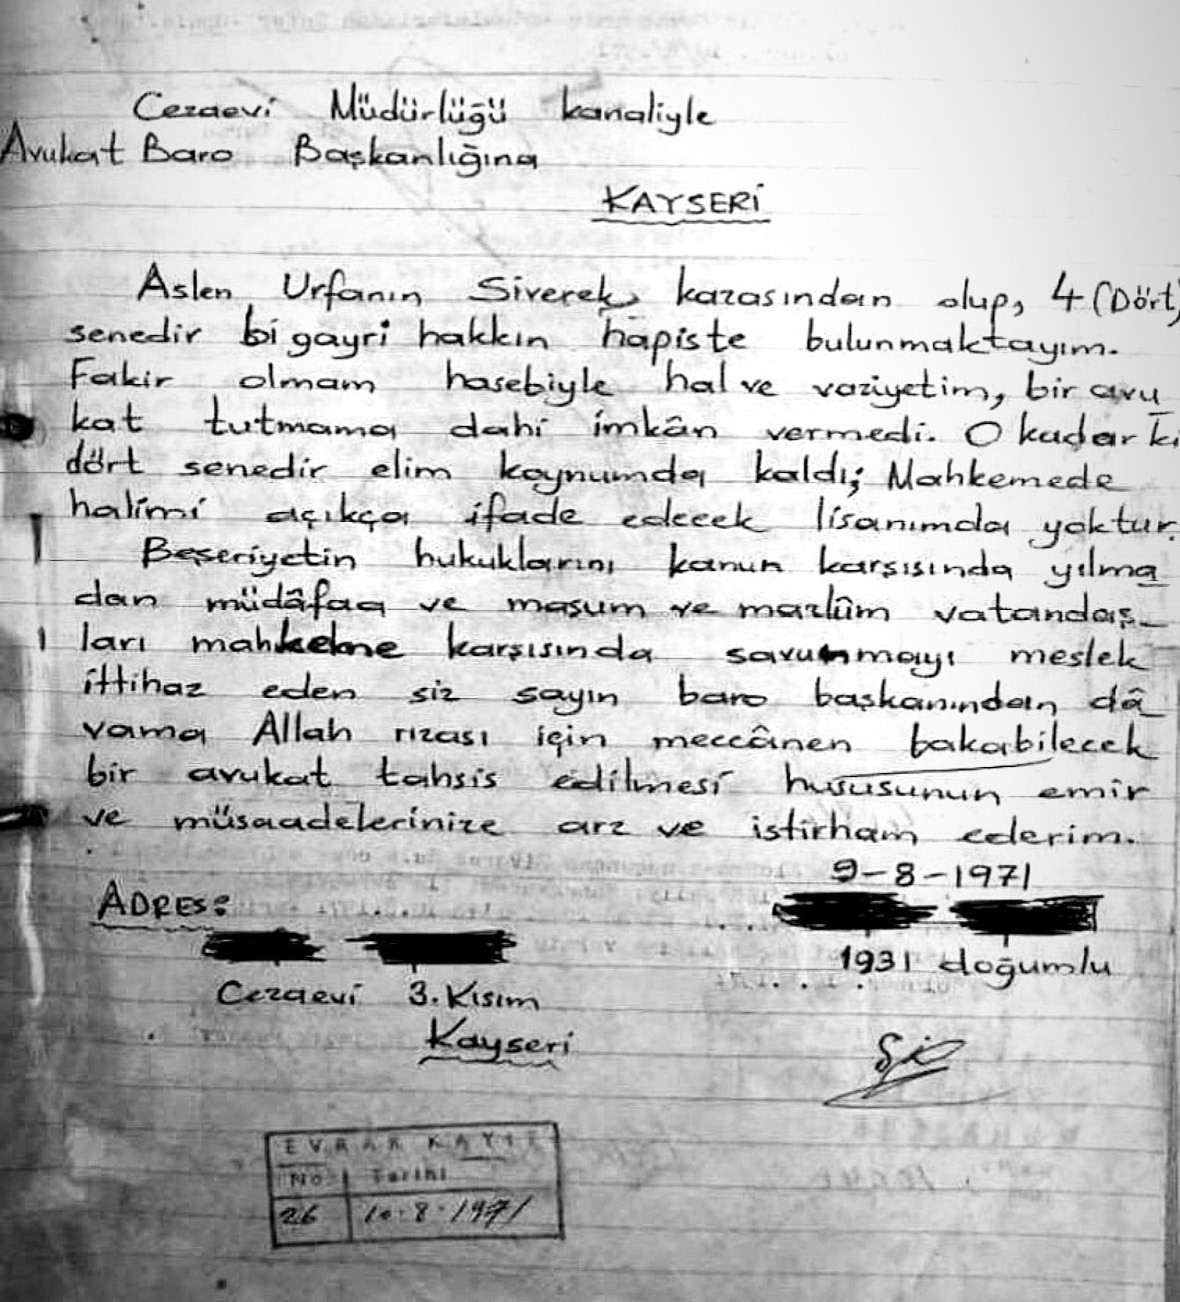 Cezaevi Müdürlüğü kanaliyle
Avukat Baro Başkanlığına
KAYSERİ
Aslen Urfanın Siverek kazasından olup, 4 (Dört)
senedir bi gayri hakkın hapiste bulunmaktayım.
Fakir olmam hasebiyle hal ve vaziyetim, bir avu
kat tutmama dahi imkân vermedi. O kadar ki
dört senedir elim koynumda kaldı; Mahkemede
halimi açıkça ifade edecek lisanımda yoktur.
Beşeriyetin hukuklarını kanun karşısında yılma
dan müdâfaa ve masum ve mazlûm vatandaş-
ları mahkeme karşısında savunmayı meslek
ittihaz eden siz sayın baro başkanından dâ
vama Allah rızası için meccânen bakabilecek
bir avukat tahsis edilmesi hususunun emir
ve müsaadelerinize arz ve istirham ederim.
9-8-1971
ADRES:
1931 doğumlu
Cezaevi 3. Kısım
Kayseri
EVRAK KAYIT
No Tarihi
26 10.8.1971